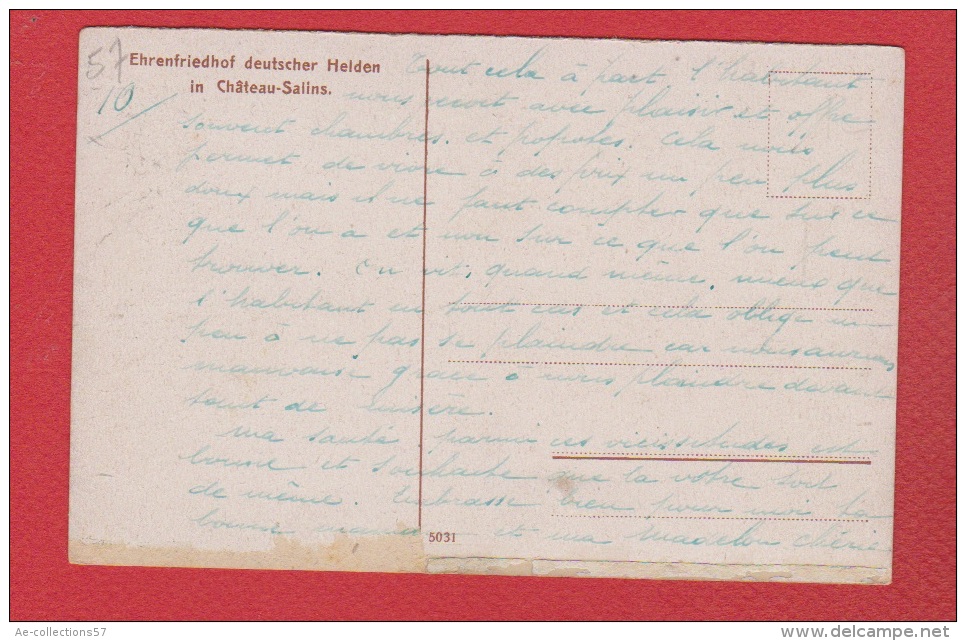 57
10
Ehrenfriedhof deutscher Helden
in Château-Salins.
Tout cela à part l'habitant
nous reçoit avec plaisir et offre
souvent chambres et popotes. Cela nous
permet de vivre à des prix un peu plus
doux mais il ne faut compter que sur ce
que l'on a et non sur ce que l'on peut
trouver. On vit quand même mieux que
l'habitant en tout cas et cela oblige un
peu à ne pas se plaindre car nous aurions
mauvaise grace à nous plaindre devant
tant de misère.
Ma santé parmi ces vicissitudes est
bonne et souhaite que la votre soit
de même. Embrasse bien pour moi ta
bonne maman et ma Madelon chérie
5031
Ae-collections57